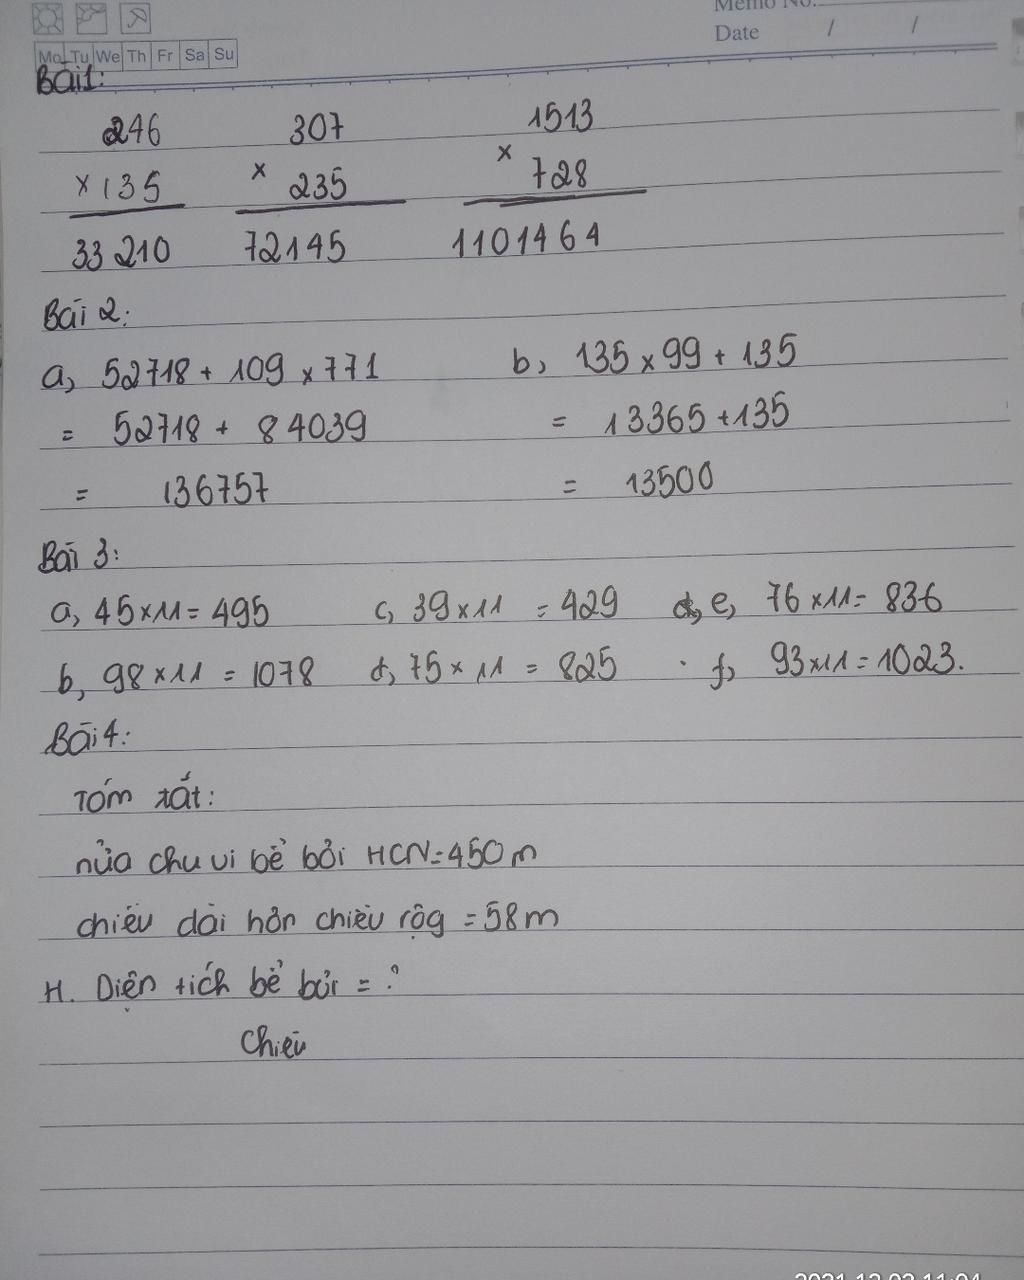 Memo No.
Date / /
Mo Tu We Th Fr Sa Su
Bài 1:
246 307 1513
x 135 x 235 x 728
33 210 72145 1101464
Bài 2:
a, 52718 + 109 x 771 b, 135 x 99 + 135
= 52718 + 84039 = 13365 + 135
= 136757 = 13500
Bài 3:
a, 45 x 11 = 495 c, 39 x 11 = 429 e, 76 x 11 = 836
b, 98 x 11 = 1078 d, 75 x 11 = 825 f, 93 x 11 = 1023.
Bài 4:
Tóm tắt:
nửa chu vi bể bơi HCN = 450 m
chiều dài hơn chiều rộg = 58 m
H. Diện tích bể bơi = ?
Chiều
2021.12.02 11:04